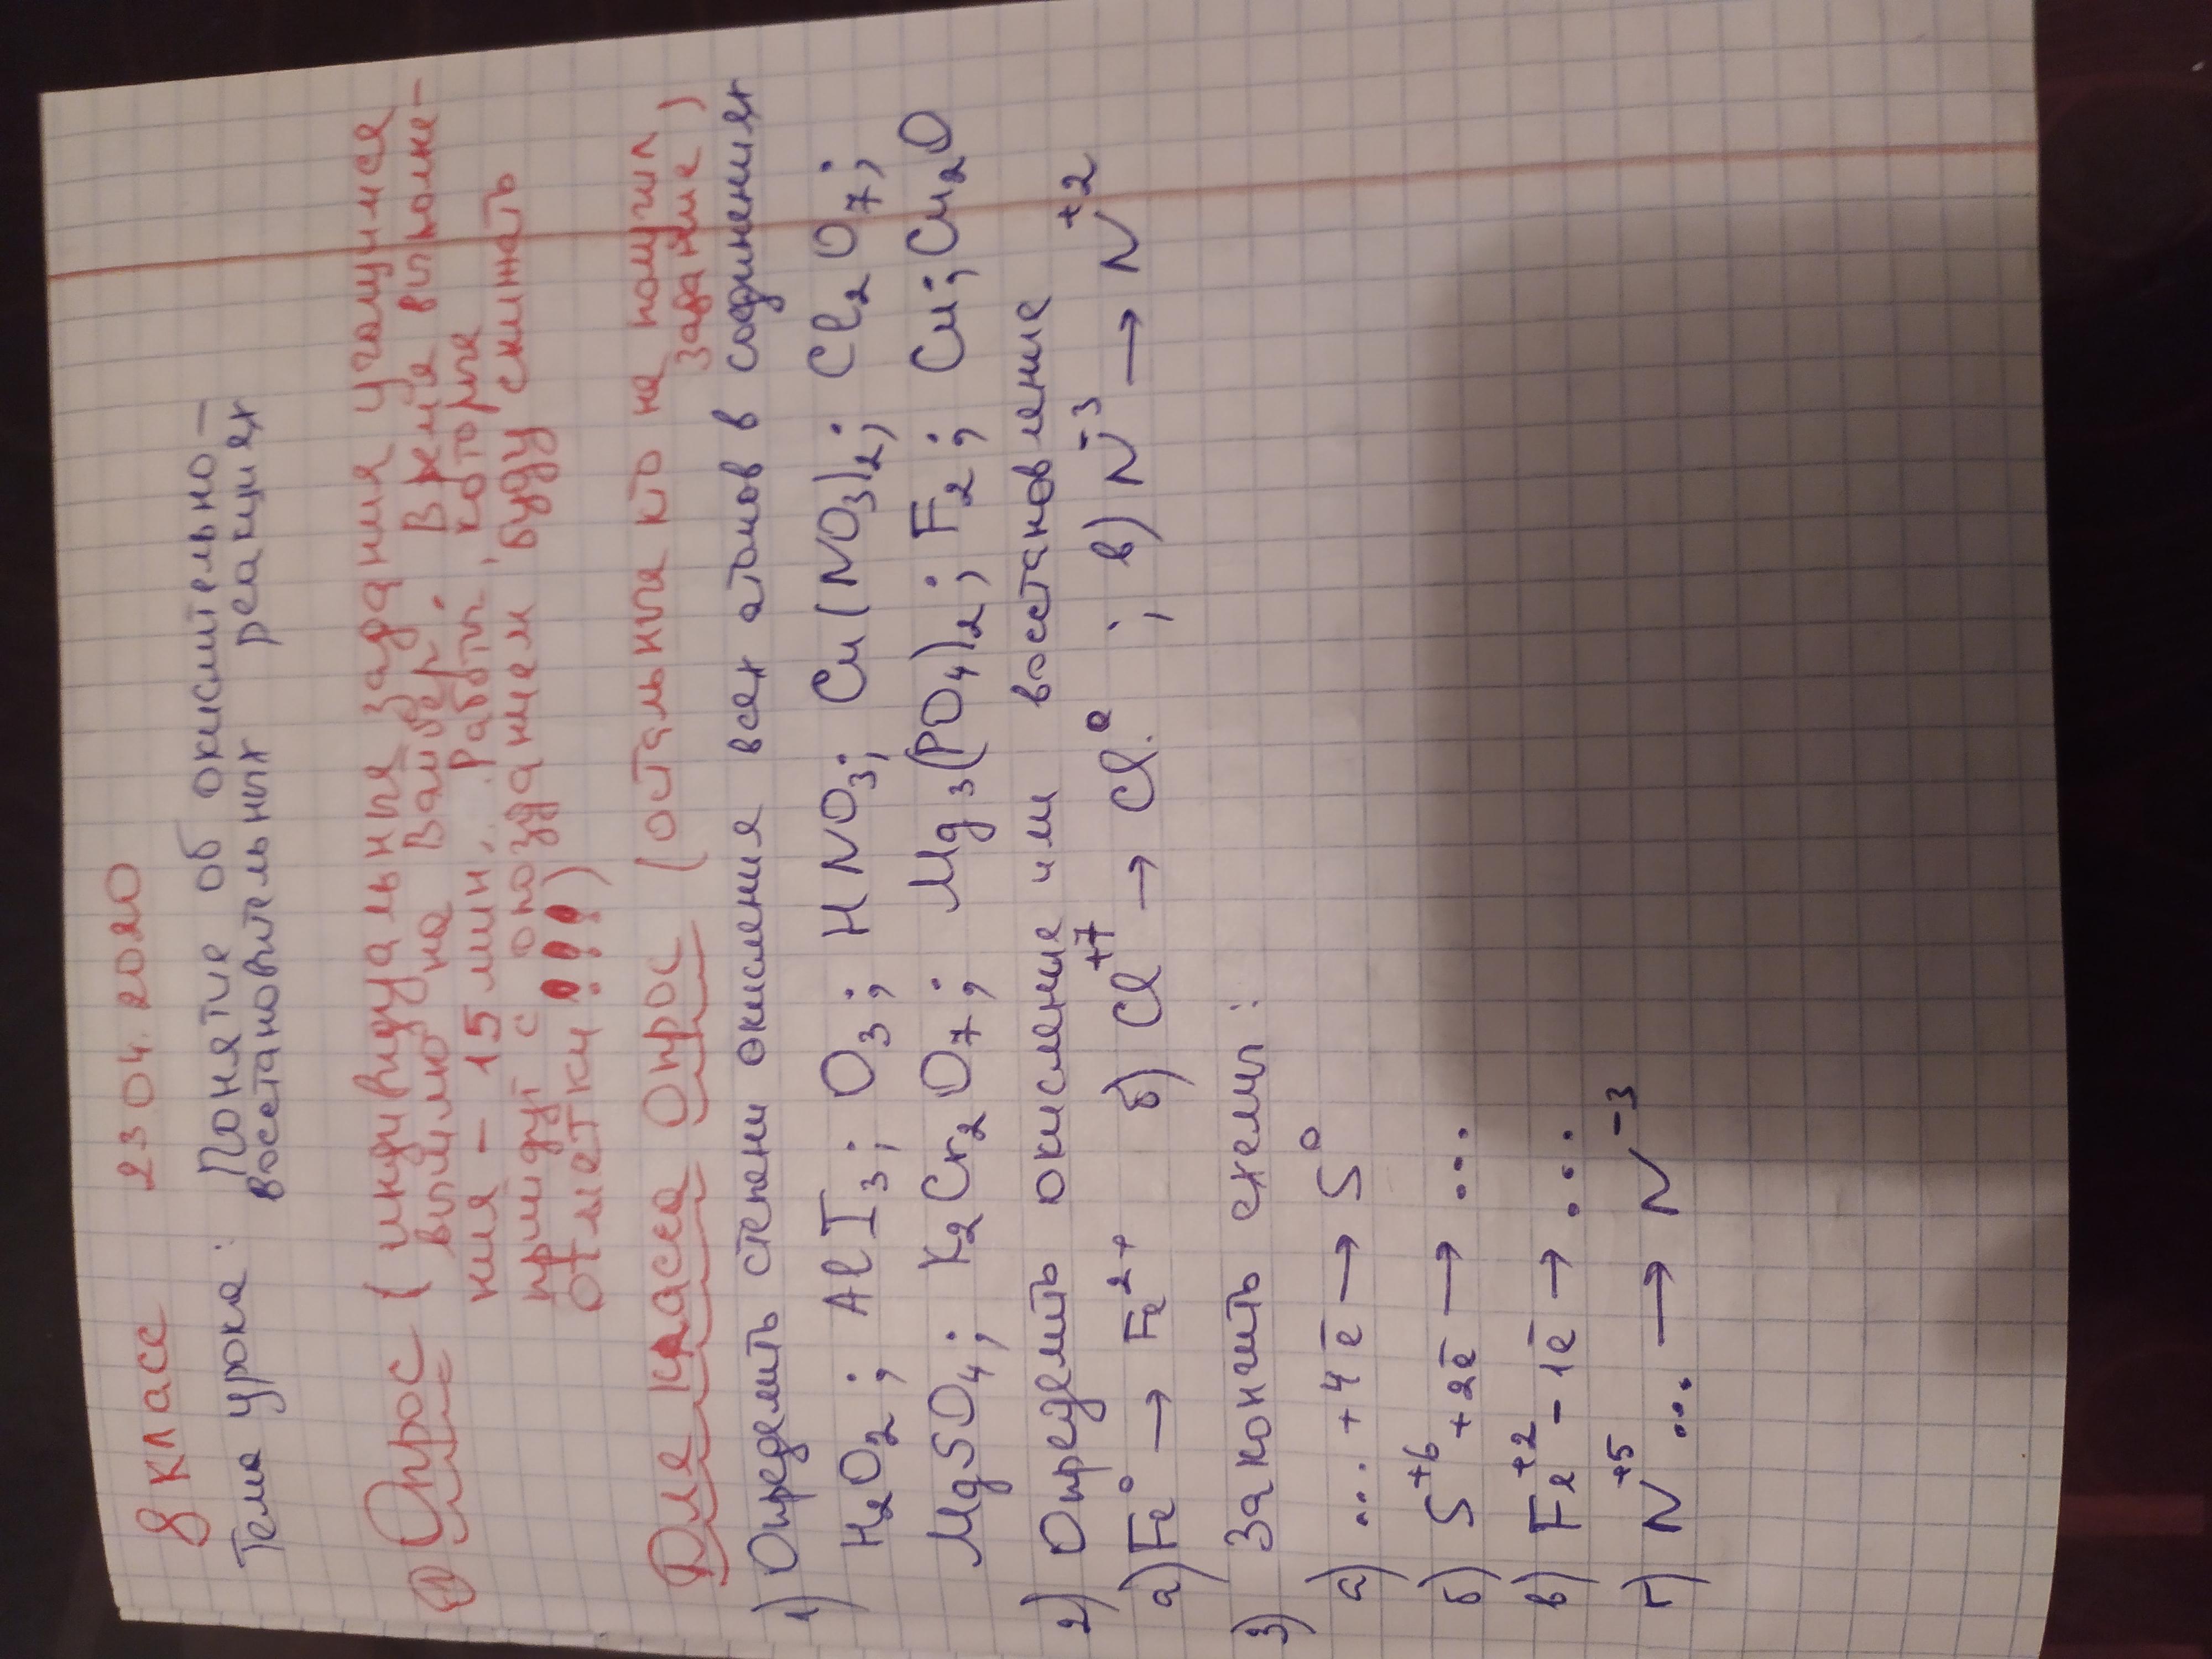 8 класс 23.04.2020
Тема урока: Понятие об окислительно-
восстановительных реакциях
① Опрос (индивидуальные задания уголщися
вышлю на Вайбер. Время выполне-
ния - 15 мин. Работы, которые
придут с опозданием, буду снижать
отметку!!!)
Для класса Опрос (остальные кто не получил
задание)
1) Определить степени окисления всех атомов в соединениях
H₂O₂; AlI₃; O₃; HNO₃; Cu(NO₃)₂; Cl₂O₇;
MgSO₄; K₂Cr₂O₇; Mg₃(PO₄)₂; F₂; Cu; Cu₂O
2) Определить окисление или восстановление
а) Fe⁰ → Fe²⁺ б) Cl⁺⁷ → Cl⁰ ; в) N⁻³ → N⁺²
3) Закончить схемы:
а) ... +4ē → S⁰
б) S⁺⁶ +2ē → ...
в) Fe⁺² - 1ē → ...
г) N⁺⁵ ... → N⁻³